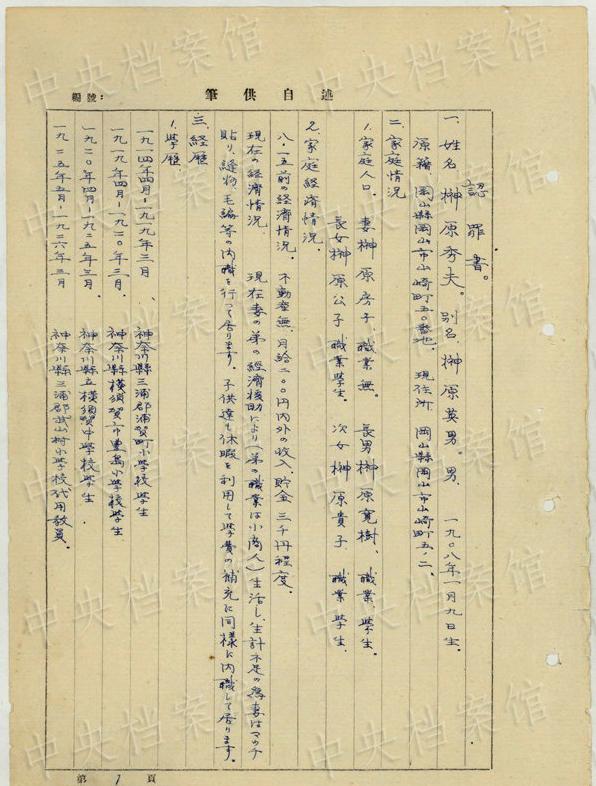 述自供筆
編號:
認罪書。
一、姓名 榊原秀夫。別名、榊原英男。男、一九〇八年一月九日生、
原籍 岡山縣岡山市山崎町五〇番地、現住所 岡山縣岡山市山崎町五ノ二、
二、家庭情况
1、家庭人口、妻榊原房子、職業無。長男榊原寛樹、職業、学生。
長女榊原公子 職業学生。次女榊原貴子、職業 学生、
2、家庭経済情况、
八・一五前の経済情况、不動産無、月給二〇〇円内外の收入、貯金 三千円程度。
現在の経済情况、現在妻の弟の経済援助により(弟の職業は小商人)生活し、生計不足の爲妻はマッチ
貼り、縫物、毛編等の内職を行って居ります。子供達も休暇を利用して学費の補充に同様に内職して居ります。
三、経歴
1、学歴、
一九一四年四月-一九一九年三月、神奈川縣三浦郡浦賀町小学校学生
一九一九年四月-一九二〇年三月、神奈川縣横須賀市豊島小学校学生
一九二〇年四月-一九二五年三月、神奈川縣立横須賀中学校学生、
一九二五年五月-一九二六年三月 神奈川縣三浦郡武山村小学校代用教員。
第 1 頁
中央档案馆